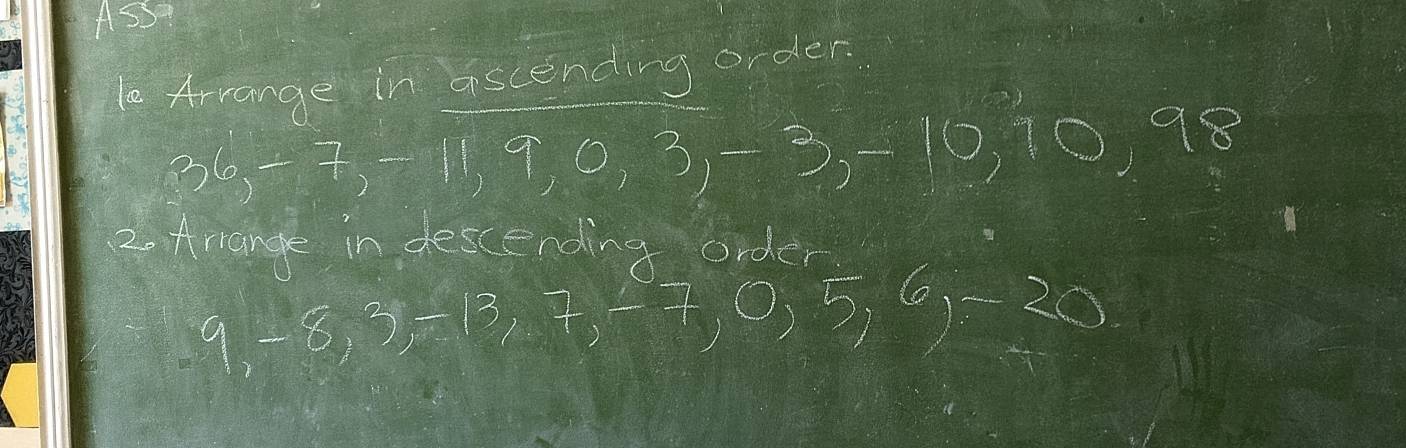 Ass
1. Arrange in ascending order.
36, -7, -11, 9, 0, 3, -3, -10, 10, 98
2. Arrange in descending order.
9, -8, 3, -13, 7, -7, 0, 5, 6, -20